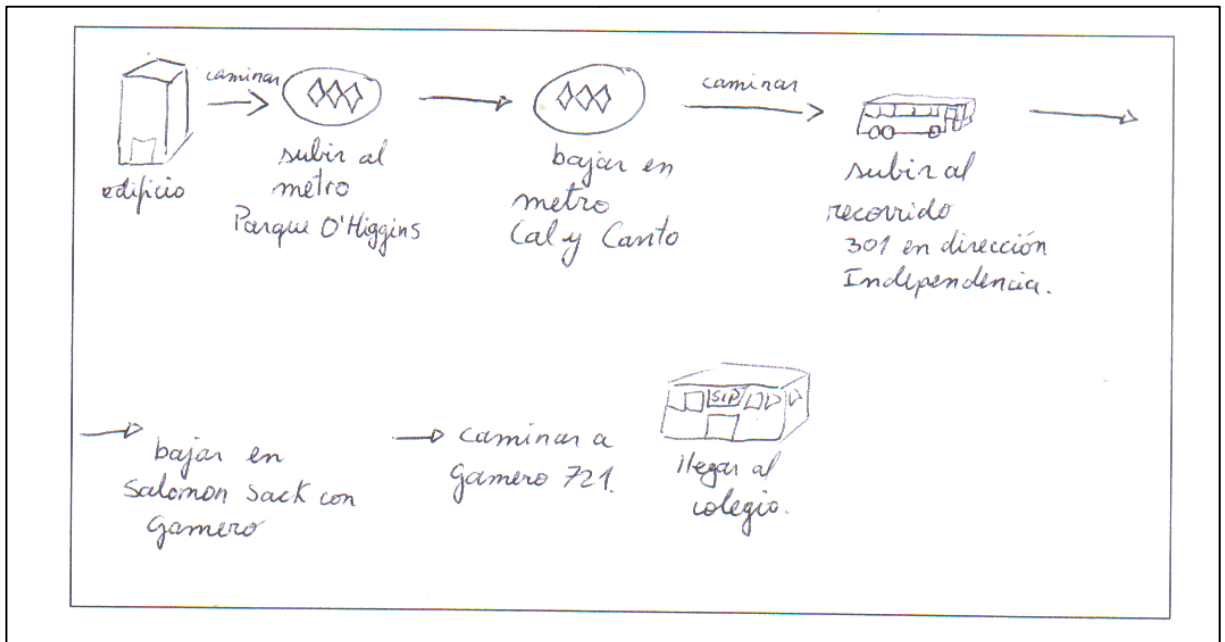 caminar
caminar
edificio
subir al
metro
Parque O'Higgins
bajar en
metro
Cal y Canto
subir al
recorrido
301 en dirección
Independencia.
bajar en
Salomon Sack con
Gamero
caminar a
Gamero 721.
SIP
llegar al
colegio.